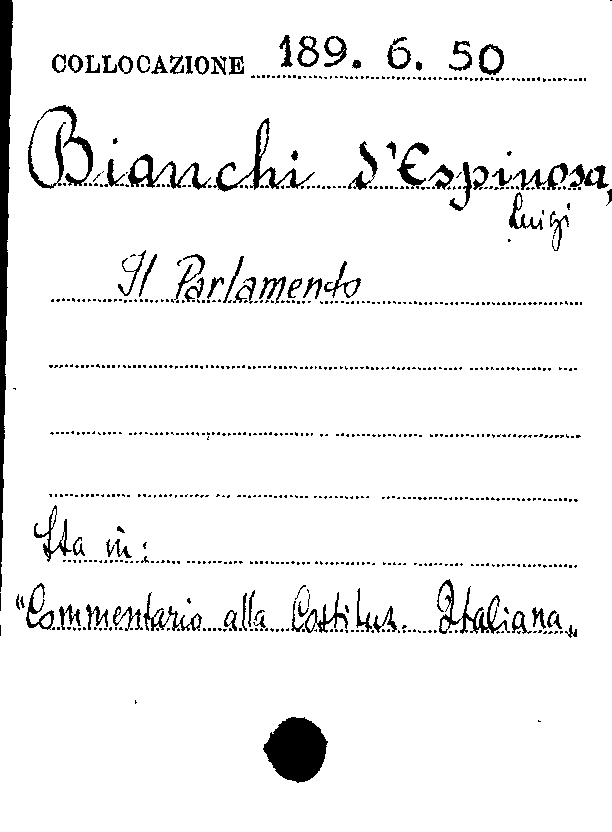 COLLOCAZIONE 189. 6. 50
Bianchi d'Espinosa,
Luigi
Il Parlamento
Sta in:
"Commentario alla Costituz. Italiana„